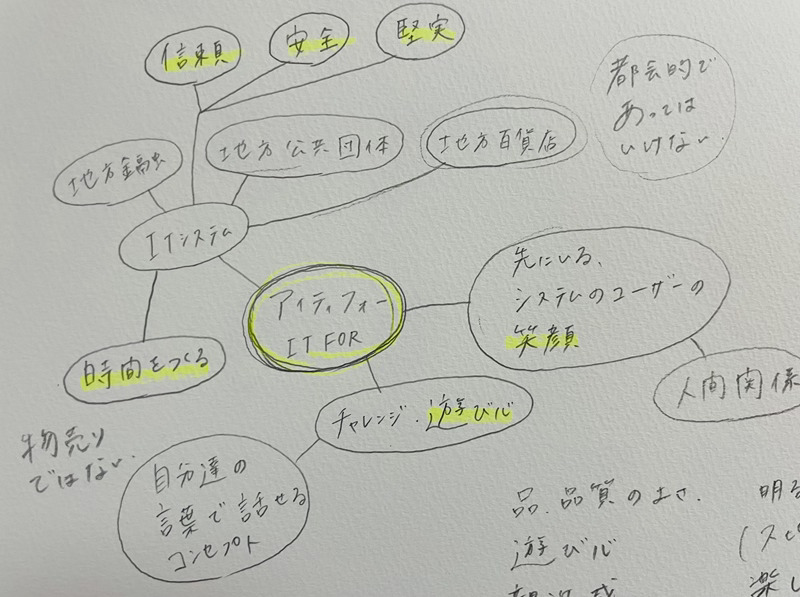 信頼
安全
堅実
都会的で
あっては
いけない.
地方金融
地方公共団体
地方百貨店
ITシステム
アイティフォー
IT FOR
先にいる、
システムのユーザーの
笑顔
人間関係
時間をつくる
チャレンジ・遊び心
物売り
ではない.
自分達の
言葉で話せる
コンセプト
品、品質のよさ.
遊び心